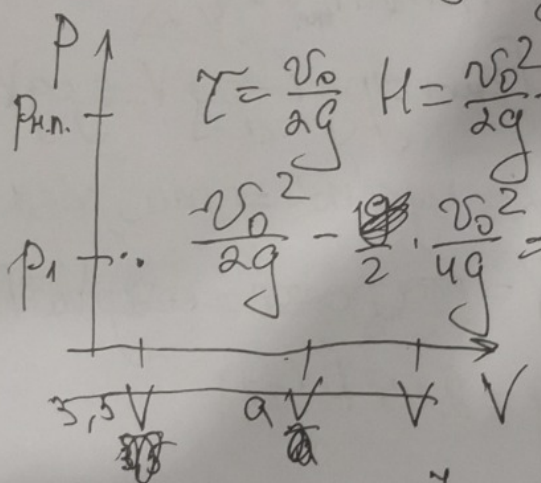 P
Pн.п.
τ = v₀/2g H = v₀²/2g
v₀²/2g - /2 · v₀²/4g =
P₁
V/3,5 V/a V V